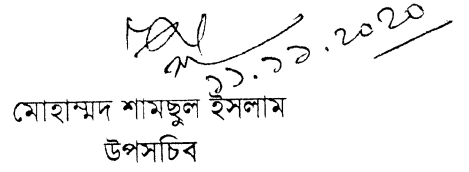 ১১.১১.২০২০
মোহাম্মদ শামছুল ইসলাম
উপসচিব